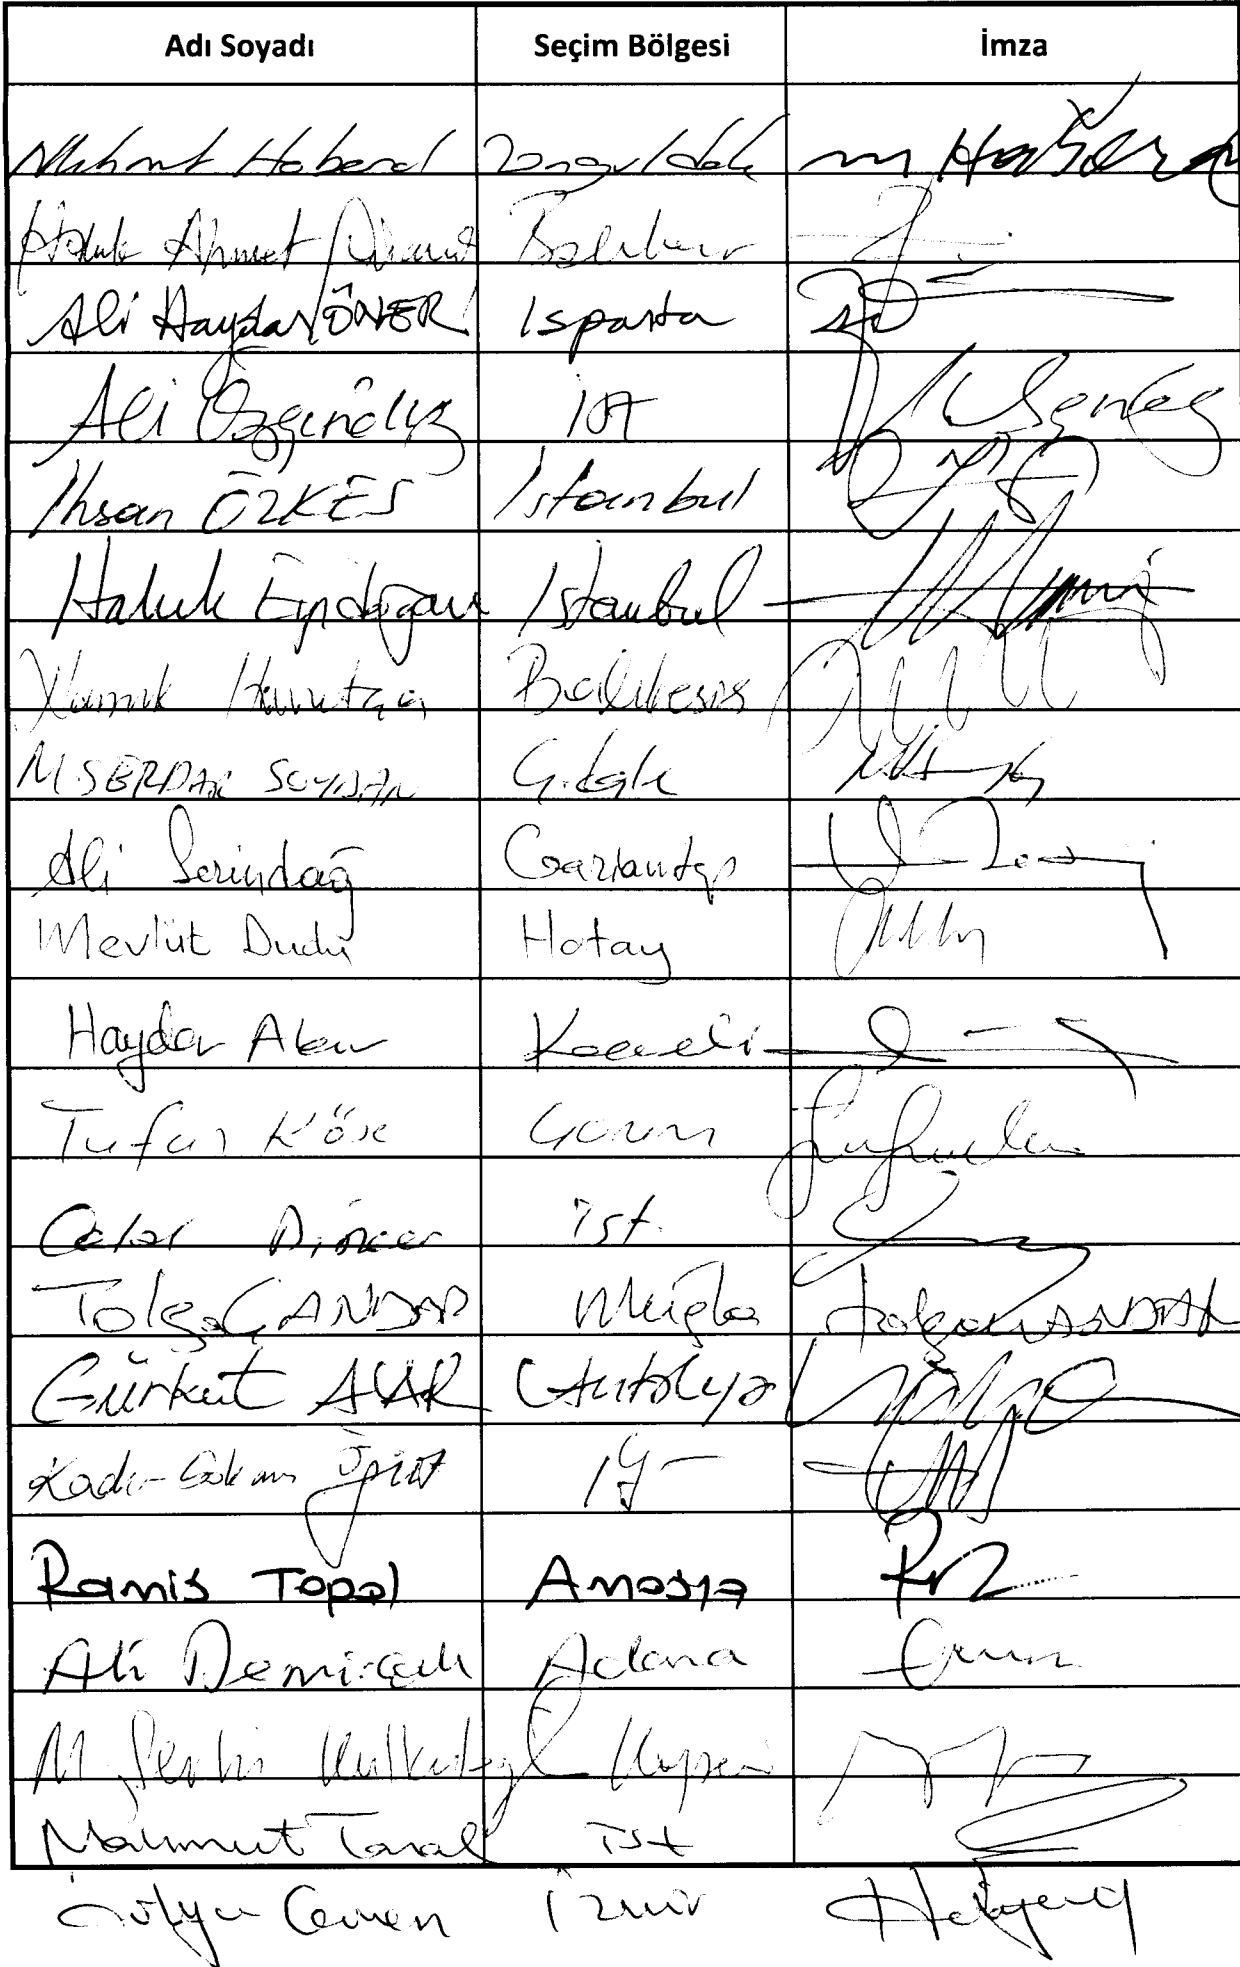 Adı Soyadı Seçim Bölgesi İmza
Mehmet Haberal Zonguldak m Haberal
Haluk Ahmet
Ali Haydar ÖNER Isparta
Ali Özgündüz İST
İhsan ÖZKES İstanbul
Haluk Eyidoğan İstanbul
Namık Havutça Balıkesir
M.SERDAR SOYDAN Ç.kale
Ali Serindağ Gaziantep
Mevlüt Dudu Hatay
Haydar Akar Kocaeli
Tufan Köse Çorum
Celal Dinçer İst.
Tolga ÇANDAR Muğla Tolga ÇANDAR
Gürkut ACAR Antalya
Kadir Gökmen Öğüt İst
Ramis Topal Amasya
Ali Demirçalı Adana
M. Şevki Kulkuloğlu Kayseri
Mahmut Tanal İst
Hülya Güven İzmir